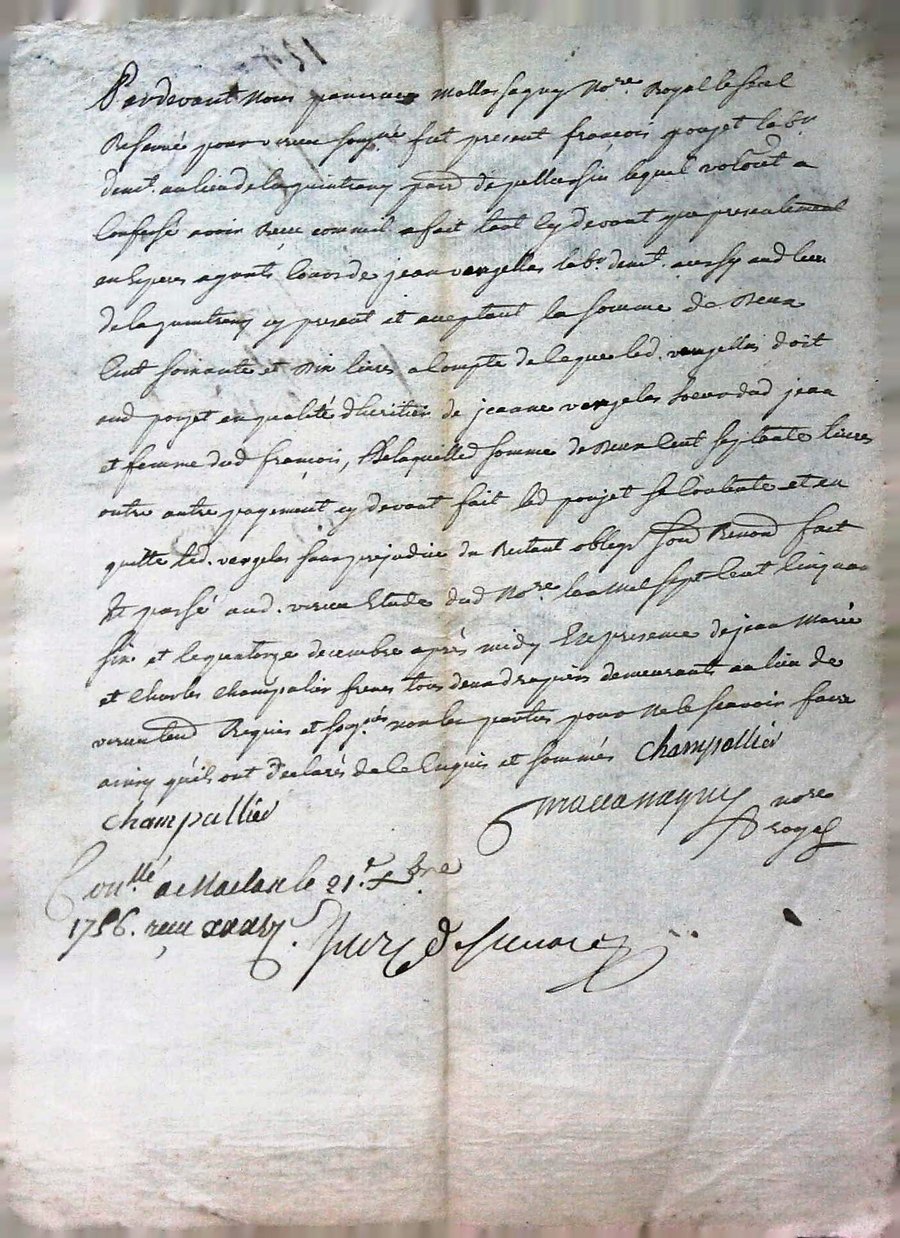 Pardevant Nous Nore Royal
Reservé pour fut present françois poujet labr
demt. au lieu de la parr de pellussin lequel volontt a
Confessé avoir Receu comme il a fait tant cy devant que presentement
en Especes ayants Cours de jean vergellas labr. demt. aussy aud lieu
de la cy present et acceptant la somme de Deux
Cent soixante et Dix livres a Compte de ce que led. vergellas doit
aud poujet en qualité d'heritier de jeanne vergelas soeur dud jean
et femme dud françois, De laquelle d somme de Deux Cent septante livres
outre autre payement cy devant fait led poujet se Contente et en
quitte led. vergelas sans prejudice du Restant oblegé fait
Et passé aud. Etude dud Nore l'an Mil sept Cent Cinquante
six et le quatorze decembre après midy En presence de jean Marie
et Charles Champalier freres tous deux drapiers demeurants au lieu de
Requis et sogés non les parties pour Ne le scavoir faire
ainsy qu'ils ont Declarés de ce Enquis et sommés Champallier
Champallier
nore
royal
Conllé a Maclas le 21e xbre
1756. receu